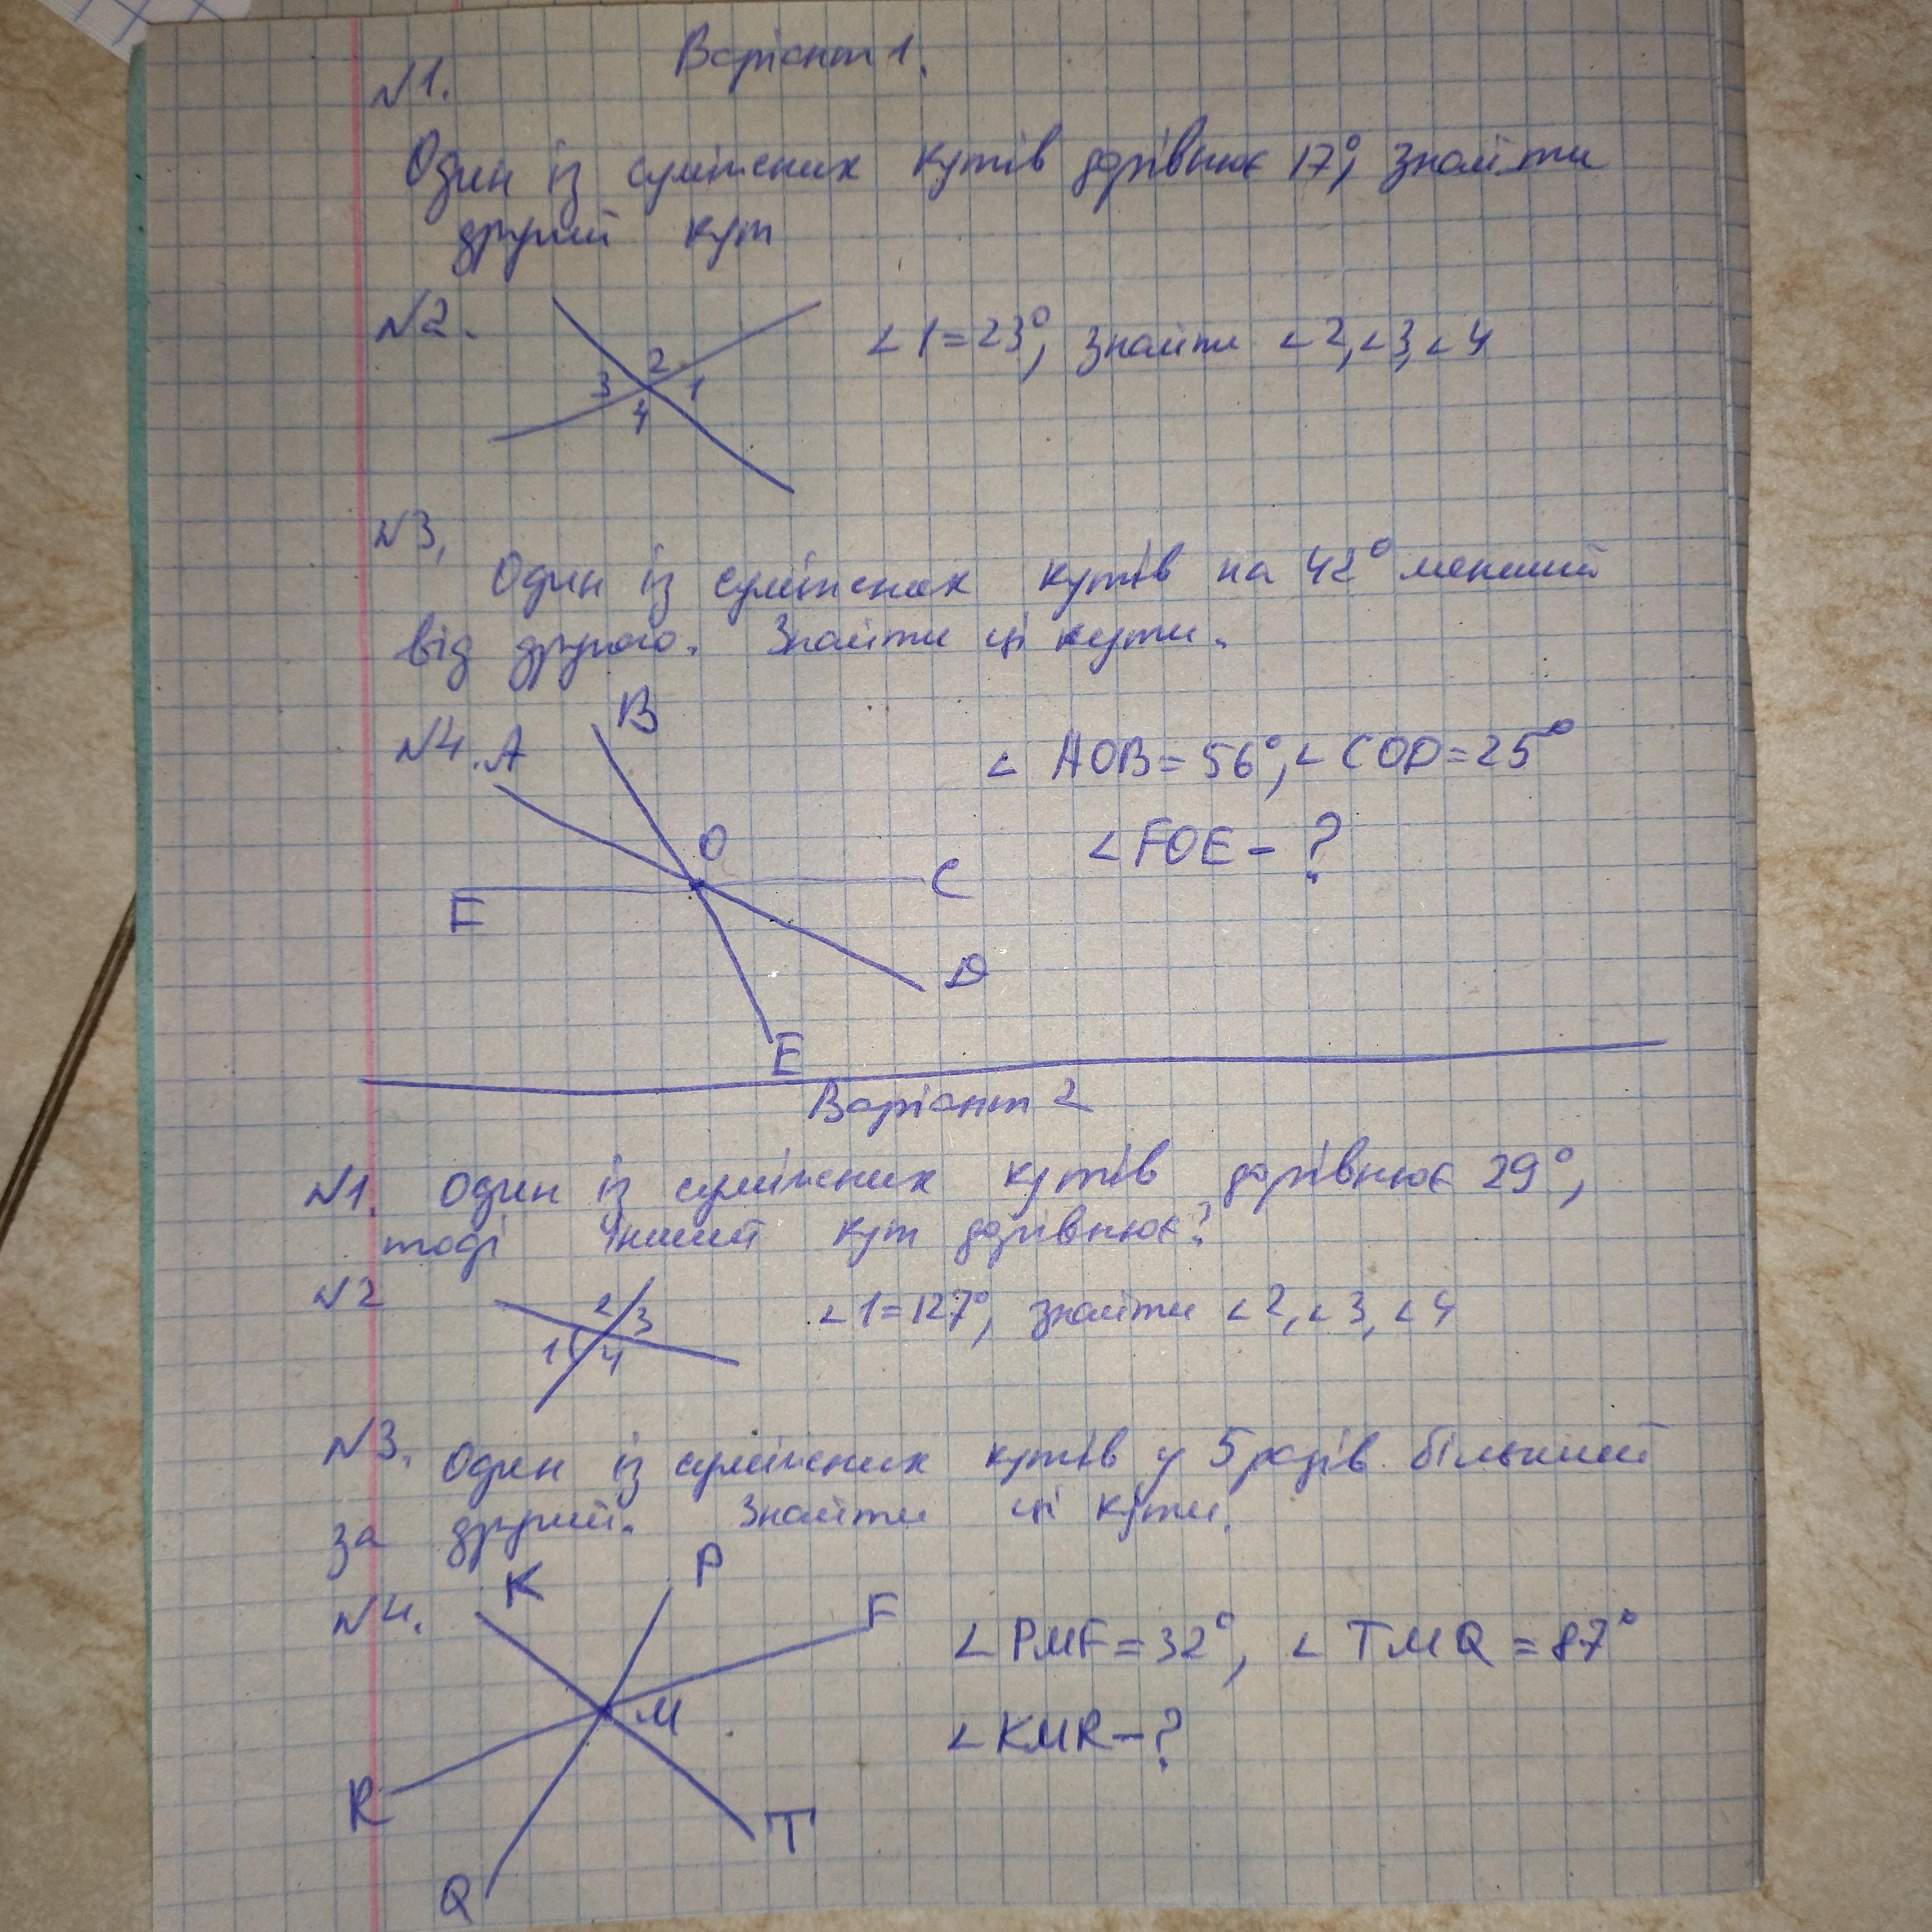 Варіант 1.
№1.
Один із суміжних кутів дорівнює 17°, знайти
другий кут
№2.
∠1=23°, знайти ∠2,∠3,∠4
2
3
1
4
№3.
Один із суміжних кутів на 42° менший
від другого. Знайти ці кути.
№4.
A
B
∠AOB=56°, ∠COD=25°
∠FOE-?
O
C
F
D
E
Варіант 2
№1. Один із суміжних кутів дорівнює 29°,
тоді інший кут дорівнює?
№2
∠1=127°, знайти ∠2,∠3,∠4
2
3
1
4
№3. Один із суміжних кутів у 5 разів більший
за другий. Знайти ці кути.
№4.
K
P
F
∠PMF=32°, ∠TMQ=87°
∠KMR-?
M
R
T
Q